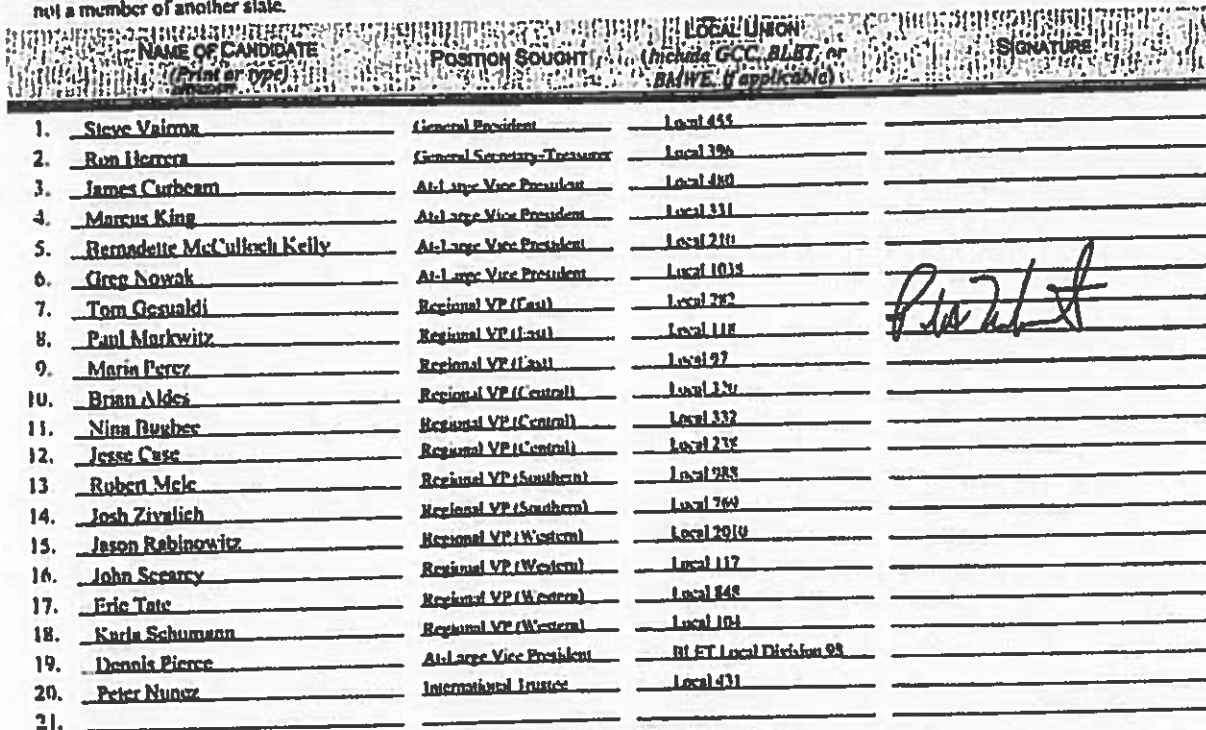 not a member of another slate.
NAME OF CANDIDATE (Print or type) POSITION SOUGHT LOCAL UNION (Include GCC, BLET, or BMWE, if applicable) SIGNATURE
1. Steve Vairma General President Local 455
2. Ron Herrera General Secretary-Treasurer Local 396
3. James Curbeam At-Large Vice President Local 480
4. Marcus King At-Large Vice President Local 331
5. Bernadette McCulloch Kelly At-Large Vice President Local 210
6. Greg Nowak At-Large Vice President Local 1038
7. Tom Gesualdi Regional VP (East) Local 282
8. Paul Markwitz Regional VP (East) Local 118
9. Maria Perez Regional VP (East) Local 97
10. Brian Aldes Regional VP (Central) Local 320
11. Nina Bugbee Regional VP (Central) Local 332
12. Jesse Case Regional VP (Central) Local 238
13 Robert Mele Regional VP (Southern) Local 988
14. Josh Zivalich Regional VP (Southern) Local 769
15. Jason Rabinowitz Regional VP (Western) Local 2010
16. John Scearcy Regional VP (Western) Local 117
17. Eric Tate Regional VP (Western) Local 848
18. Karla Schumann Regional VP (Western) Local 104
19. Dennis Pierce At-Large Vice President BLET Local Division 98
20. Peter Nunez International Trustee Local 431
21.